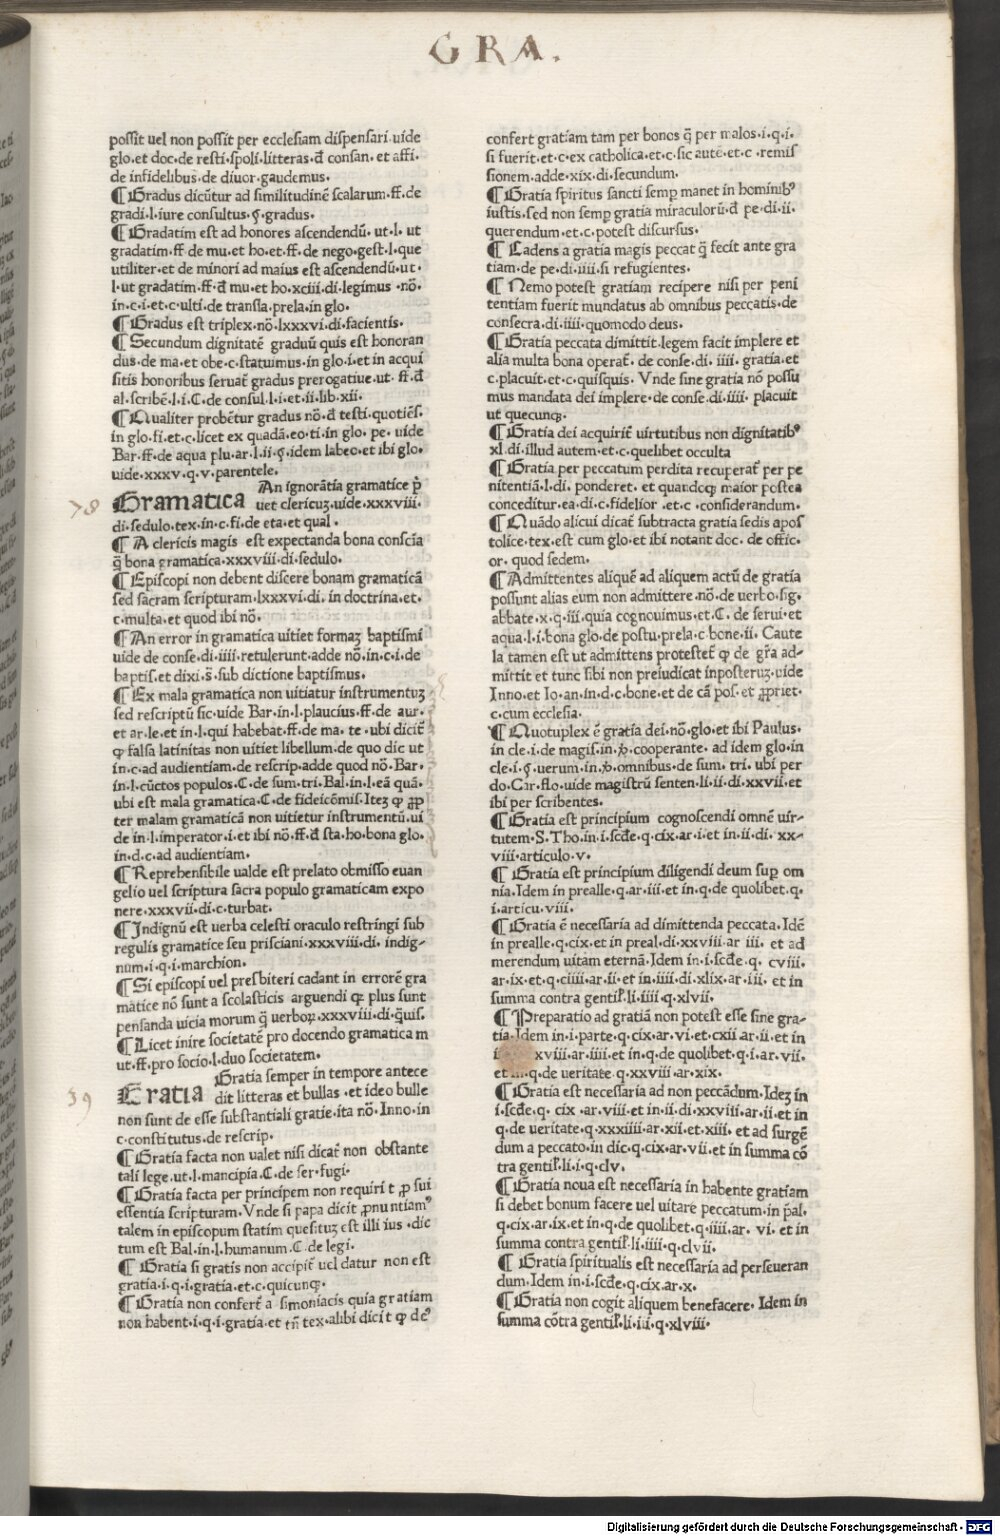 GRA.
possit uel non possit per ecclesiam dispensari uide
glo·et doc·de resti·spoli·litteras·đ consan·et affi·
de infidelibus·de diuor·gaudemus·
¶ Gradus dicūtur ad similitudinē scalarum·ff·de
gradi·l·iure consultus·§·gradus·
¶ Gradatim est ad honores ascendendū·ut·l·ut
gradatim·ff·de mu·et ho·et·ff·de nego·gest·l·que
utiliter·et de minori ad maius est ascendendū·ut·
l·ut gradatim·ff·đ mu·et ho·xciii·di·legimus·nō·
in·c·i·et·c·ulti·de transla·prela·in glo·
¶ Gradus est triplex·nō·lxxxvi·di·facientis·
¶ Secundum dignitatē graduū quis est honoran
dus·de ma·et obe·c·statuimus·in glo·i·et in acqui
sitis honoribus seruat᷑ gradus prerogatiue·ut·ff·đ
al·scribē·l·i·C·de consul·l·i·et·ii·lib·xii·
¶ Qualiter probētur gradus nō·đ testi·quotiēs·
in glo·fi·et·c·licet ex quadā·eo·ti·in glo·pe·uide
Bar·ff·de aqua plu·ar·l·ii·§·idem labeo·et ibi glo·
uide·xxxv·q·v·parentele·
78
Gramatica An ignorātia gramatice p̄
uet clericuʒ·uide·xxxviii·
di·sedulo·tex·in·c·fi·de eta·et qual·
¶ A clericis magis est expectanda bona conscīa
q̄ bona gramatica·xxxviii·di·sedulo·
¶ Episcopi non debent discere bonam gramaticā
sed sacram scripturam·lxxxvi·di·in doctrina·et·
c·multa·et quod ibi nō·
¶ An error in gramatica uitiet formaʒ baptismi
uide de conse·di·iiii·retulerunt·adde nō·in·c·i·de
baptis·et dixi·s̄·sub dictione baptismus·
¶ Ex mala gramatica non uitiatur instrumentuʒ
sed rescriptū sic·uide Bar·in·l·plaucius·ff·de aur·
et ar·le·et in·l·qui habebat·ff·de ma·te·ubi dicit᷑
ꝙ falsa latinitas non uitiet libellum·de quo dic ut
in·c·ad audientiam·de rescrip·adde quod nō·Bar·
in·l·cūctos populos·C·de sum·tri·Bal·in·l·eā quā·
ubi est mala gramatica·C·de fideicōmis·Iteʒ ꝙ ꝓp
ter malam gramaticā non uitietur instrumentū·ui
de in·l·imperator·i·et ibi nō·ff·đ sta·ho·bona glo·
in·d·c·ad audientiam·
¶ Reprehensibile ualde est prelato obmisso euan
gelio uel scriptura sacra populo gramaticam expo
nere·xxxvii·di·c·turbat·
¶ Indignū est uerba celesti oraculo restringi sub
regulis gramatice seu prisciani·xxxviii·di·indig-
num·i·q·i·marchion·
¶ Si episcopi uel presbiteri cadant in errorē gra
matice nō sunt a scolasticis arguendi qꝛ plus sunt
pensanda uicia morum q̄ uerboꝝ·xxxviii·di·quis·
¶ Licet inire societatē pro docendo gramatica m
ut·ff·pro socio·l·duo societatem·
39
Gratia Gratia semper in tempore antece
dit litteras et bullas·et ideo bulle
non sunt de esse substantiali gratie·ita nō·Inno·in
c·constitutus·de rescrip·
¶ Gratia facta non ualet nisi dicat᷑ non obstante
tali lege·ut·l·mancipia·C·de ser·fugi·
¶ Gratia facta per principem non requiri t ꝓ sui
essentia scripturam·Vnde si papa dicit ꝓnuntiamꝰ
talem in episcopum statim quesituʒ est illi ius·dic
tum est Bal·in·l·humanum·C·de legi·
¶ Gratia si gratis non accipit᷑ uel datur non est
gratia·i·q·i·gratia·et·c·quicunqʒ·
¶ Gratia non confert᷑ a simoniacis quia gratiam
non habent·i·q·i·gratia·et tn̄ tex·alibi dicit ꝙ deꝰ
confert gratiam tam per bonos q̄ per malos·i·q·i·
si fuerit·et·c·ex catholica·et·c·sic autē·et·c·remis
sionem·adde·xix·di·secundum·
¶ Gratia spiritus sancti semꝑ manet in hominibꝰ
iustis·sed non semꝑ gratia miraculorū·đ pe·di·ii·
querendum·et·c·potest discursus·
¶ Cadens a gratia magis peccat q̄ fecit ante gra
tiam·de pe·di·iiii·si refugientes·
¶ Nemo potest gratiam recipere nisi per peni
tentiam fuerit mundatus ab omnibus peccatis·de
consecra·di·iiii·quomodo deus·
¶ Gratia peccata dimittit·legem facit implere et
alia multa bona operat᷑·de conse·di·iiii·gratia·et
c·placuit·et·c·quisquis·Vnde sine gratia nō possu
mus mandata dei implere·de conse·di·iiii·placuit
ut quecunqʒ·
¶ Gratia dei acquirit᷑ uirtutibus non dignitatibꝰ
xl·di·illud autem·et·c·quelibet occulta
¶ Gratia per peccatum perdita recuperat᷑ per pe
nitentiā·l·di·ponderet·et quandoqʒ maior postea
conceditur·ea·di·c·fidelior·et·c·considerandum·
¶ Quādo alicui dicat᷑ subtracta gratia sedis apos
tolice·tex·est cum glo·et ibi notant doc·de offic·
or·quod sedem·
¶ Admittentes aliquē ad aliquem actū de gratia
possunt alias eum non admittere·nō·de uerbo·sig·
abbate·x·q·iii·quia cognouimus·et·C·de serui·et
aqua·l·i·bona glo·de postu·prela·c·bone·ii·Caute
la tamen est ut admittens protestet᷑ ꝙ de gr̄a ad-
mittit et tunc sibi non preiudicat inposteruʒ·uide
Inno·et Io·an·in·d·c·bone·et de cā pos·et ꝓpriet·
c·cum ecclesia·
¶ Quotuplex ē gratia dei·nō·glo·et ibi Paulus·
in cle·i·de magis·in·ꝟ·cooperante·ad idem glo·in
cle·i·§·uerum·in·ꝟ·omnibus·de sum·tri·ubi per
do·Car·flo·uide magistrū senten·li·ii·di·xxvii·et
ibi per scribentes·
¶ Gratia est principium cognoscendi omnē uir-
tutem·S·Tho·in·i·scđe·q·cix·ar·i·et in·ii·di·xx-
viii·articulo·v·
¶ Gratia est principium diligendi deum suꝑ om
nia·Idem in prealle·q·ar·iii·et in·q·de quolibet·q·
i·articu·viii·
¶ Gratia ē necessaria ad dimittenda peccata·Idē
in prealle·q·cix·et in preal·di·xxviii·ar iii·et ad
merendum uitam eternā·Idem in·i·scđe·q·cviii·
ar·ix·et·q·ciiii·ar·ii·et in·iiii·di·xlix·ar·iii·et in
summa contra gentil᷑·li·iiii·q·xlvii·
¶ Preparatio ad gratiā non potest esse sine gra-
tia·Idem in·i·parte·q·cix·ar·vi·et·cxii·ar·ii·et in
xviii·ar·iiii·et in·q·de quolibet·q·i·ar·vii·
et in·q·de ueritate·q·xxviii·ar·xix·
¶ Gratia est necessaria ad non peccādum·Ideʒ in
i·scđe·q·cix·ar·viii·et in·ii·di·xxviii·ar·ii·et in
q·de ueritate·q·xxxiiii·ar·xii·et·xiii·et ad surgē
dum a peccato·in dic·q·cix·ar·vii·et in summa cō
tra gentil᷑·li·i·q·clv·
¶ Gratia noua est necessaria in habente gratiam
si debet bonum facere uel uitare peccatum·in p̄al·
q·cix·ar·ix·et in·q·de quolibet·q·iiii·ar·vi·et in
summa contra gentil᷑·li·iiii·q·clvii·
¶ Gratia spiritualis est necessaria ad perseueran
dum·Idem in·i·scđe·q·cix·ar·x·
¶ Gratia non cogit aliquem benefacere·Idem in
summa cōtra gentil᷑·li·iii·q·xlviii·
Digitalisierung gefördert durch die Deutsche Forschungsgemeinschaft - DFG